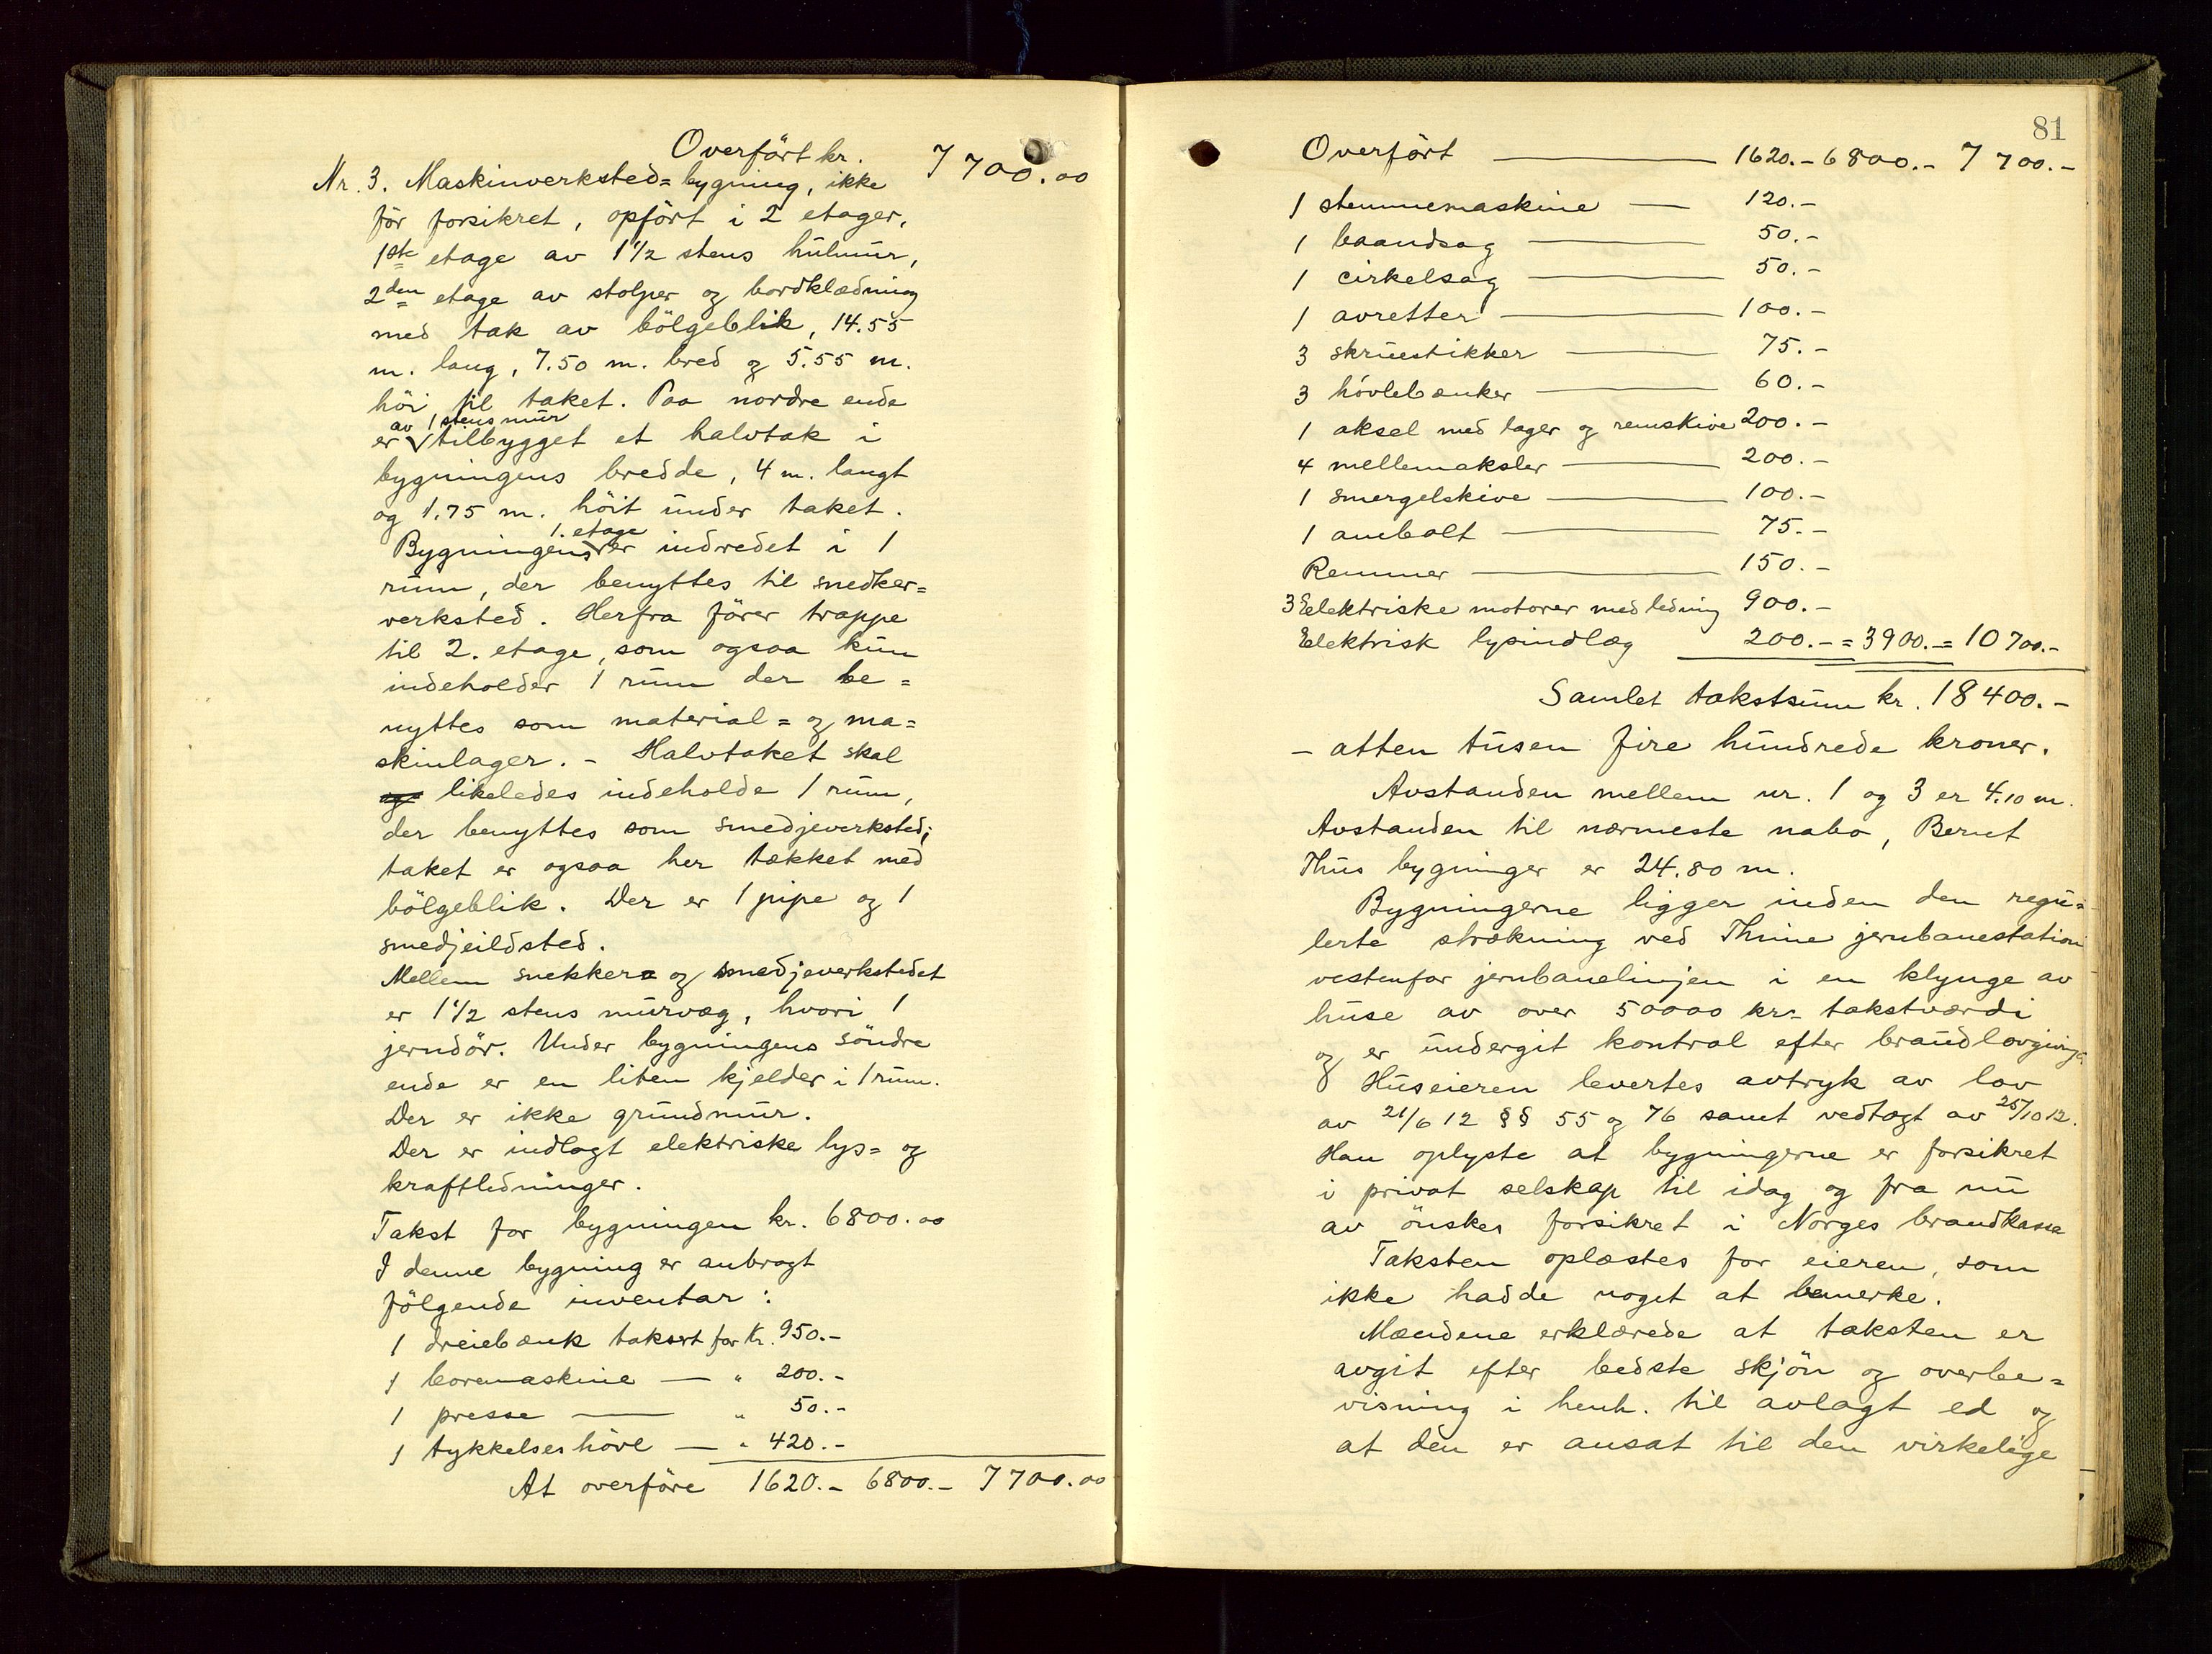 Overført kr. 7700.00
Nr. 3. Maskinverksted=bygning, ikke
før forsikret, opført i 2 etager,
1ste etage av 1 1/2 stens hulmur,
2den etage av stolper og bordklædning
med tak av bölgeblik, 14.55
m. lang, 7.50 m. bred og 5.55 m.
höi til taket. Paa nordre ende
av 1 stens mur
er tilbygget et halvtak i
bygningens bredde, 4 m. langt
og 1.75 m. höit under taket.
1. etage
Bygningens er indredet i 1
rum, der benyttes til snedker=
verksted. Herfra förer trappe
til 2. etage, som ogsaa kun
indeholder 1 rum der be=
nyttes som material= og ma=
skinlager. - Halvtaket skal
likeledes indeholde 1 rum,
der benyttes som smedjeverksted;
taket er ogsaa her tækket med
bölgeblik. Der er 1 pipe og 1
smedjeildsted.
Mellem snekker= og smedjeverkstedet
er 1 1/2 stens murvæg, hvori 1
jerndör. Under bygningens söndre
ende er en liten kjelder i 1 rum.
Der er ikke grundmur.
Der er indlagt elektriske lys= og
kraftledninger.
Takst for bygningen kr. 6800.00
I denne bygning er anbragt
fölgende inventar:
1 dreiebænk taksert for kr. 950.-
1 boremaskine — " 200.-
1 presse — " 50.-
1 tykkelseshövl — " 420.-
At overföre 1620.- 6800.- 7700.00
81
Overfört — 1620.- 6800.- 7700.-
1 stemmemaskine — 120.-
1 baandsag — 50.-
1 cirkelsag — 50.-
1 avretter — 100.-
3 skruestikker — 75.-
3 hövlebænker — 60.-
1 aksel med lager og remskive 200.-
4 mellemaksler — 200.-
1 smergelskive — 100.-
1 ambolt — 75.-
Remmer — 150.-
3 Elektriske motorer med ledning 900.-
Elektrisk lysindlæg 200.- = 3900.- = 10700.-
Samlet takstsum kr. 18400.-
- atten tusen fire hundrede kroner.
Avstanden mellem nr. 1 og 3 er 4.10 m.
Avstanden til nærmeste nabo, Bernt
Thus bygninger er 24.80 m.
Bygningerne ligger inden den regu=
lerte strækning ved Thime jernbanestation
vestenfor jernbanelinjen i en klynge av
huse av over 50000 kr= takstværdi
og er undergit kontrol efter brandlovgivng.
Huseieren levertes avtryk av lov
av 21/6 12 §§ 55 og 76 samt vedtægt av 25/10 12.
Han oplyste at bygningerne er forsikret
i privat selskap til idag og fra nu
av önskes forsikret i Norges brandkasse
Taksten oplæstes for eieren, som
ikke hadde noget at bemerke.
Mændene erklærede at taksten er
avgit efter bedste skjön og overbe=
visning i henh. til avlagt ed og
at den er ansat til den virkelige